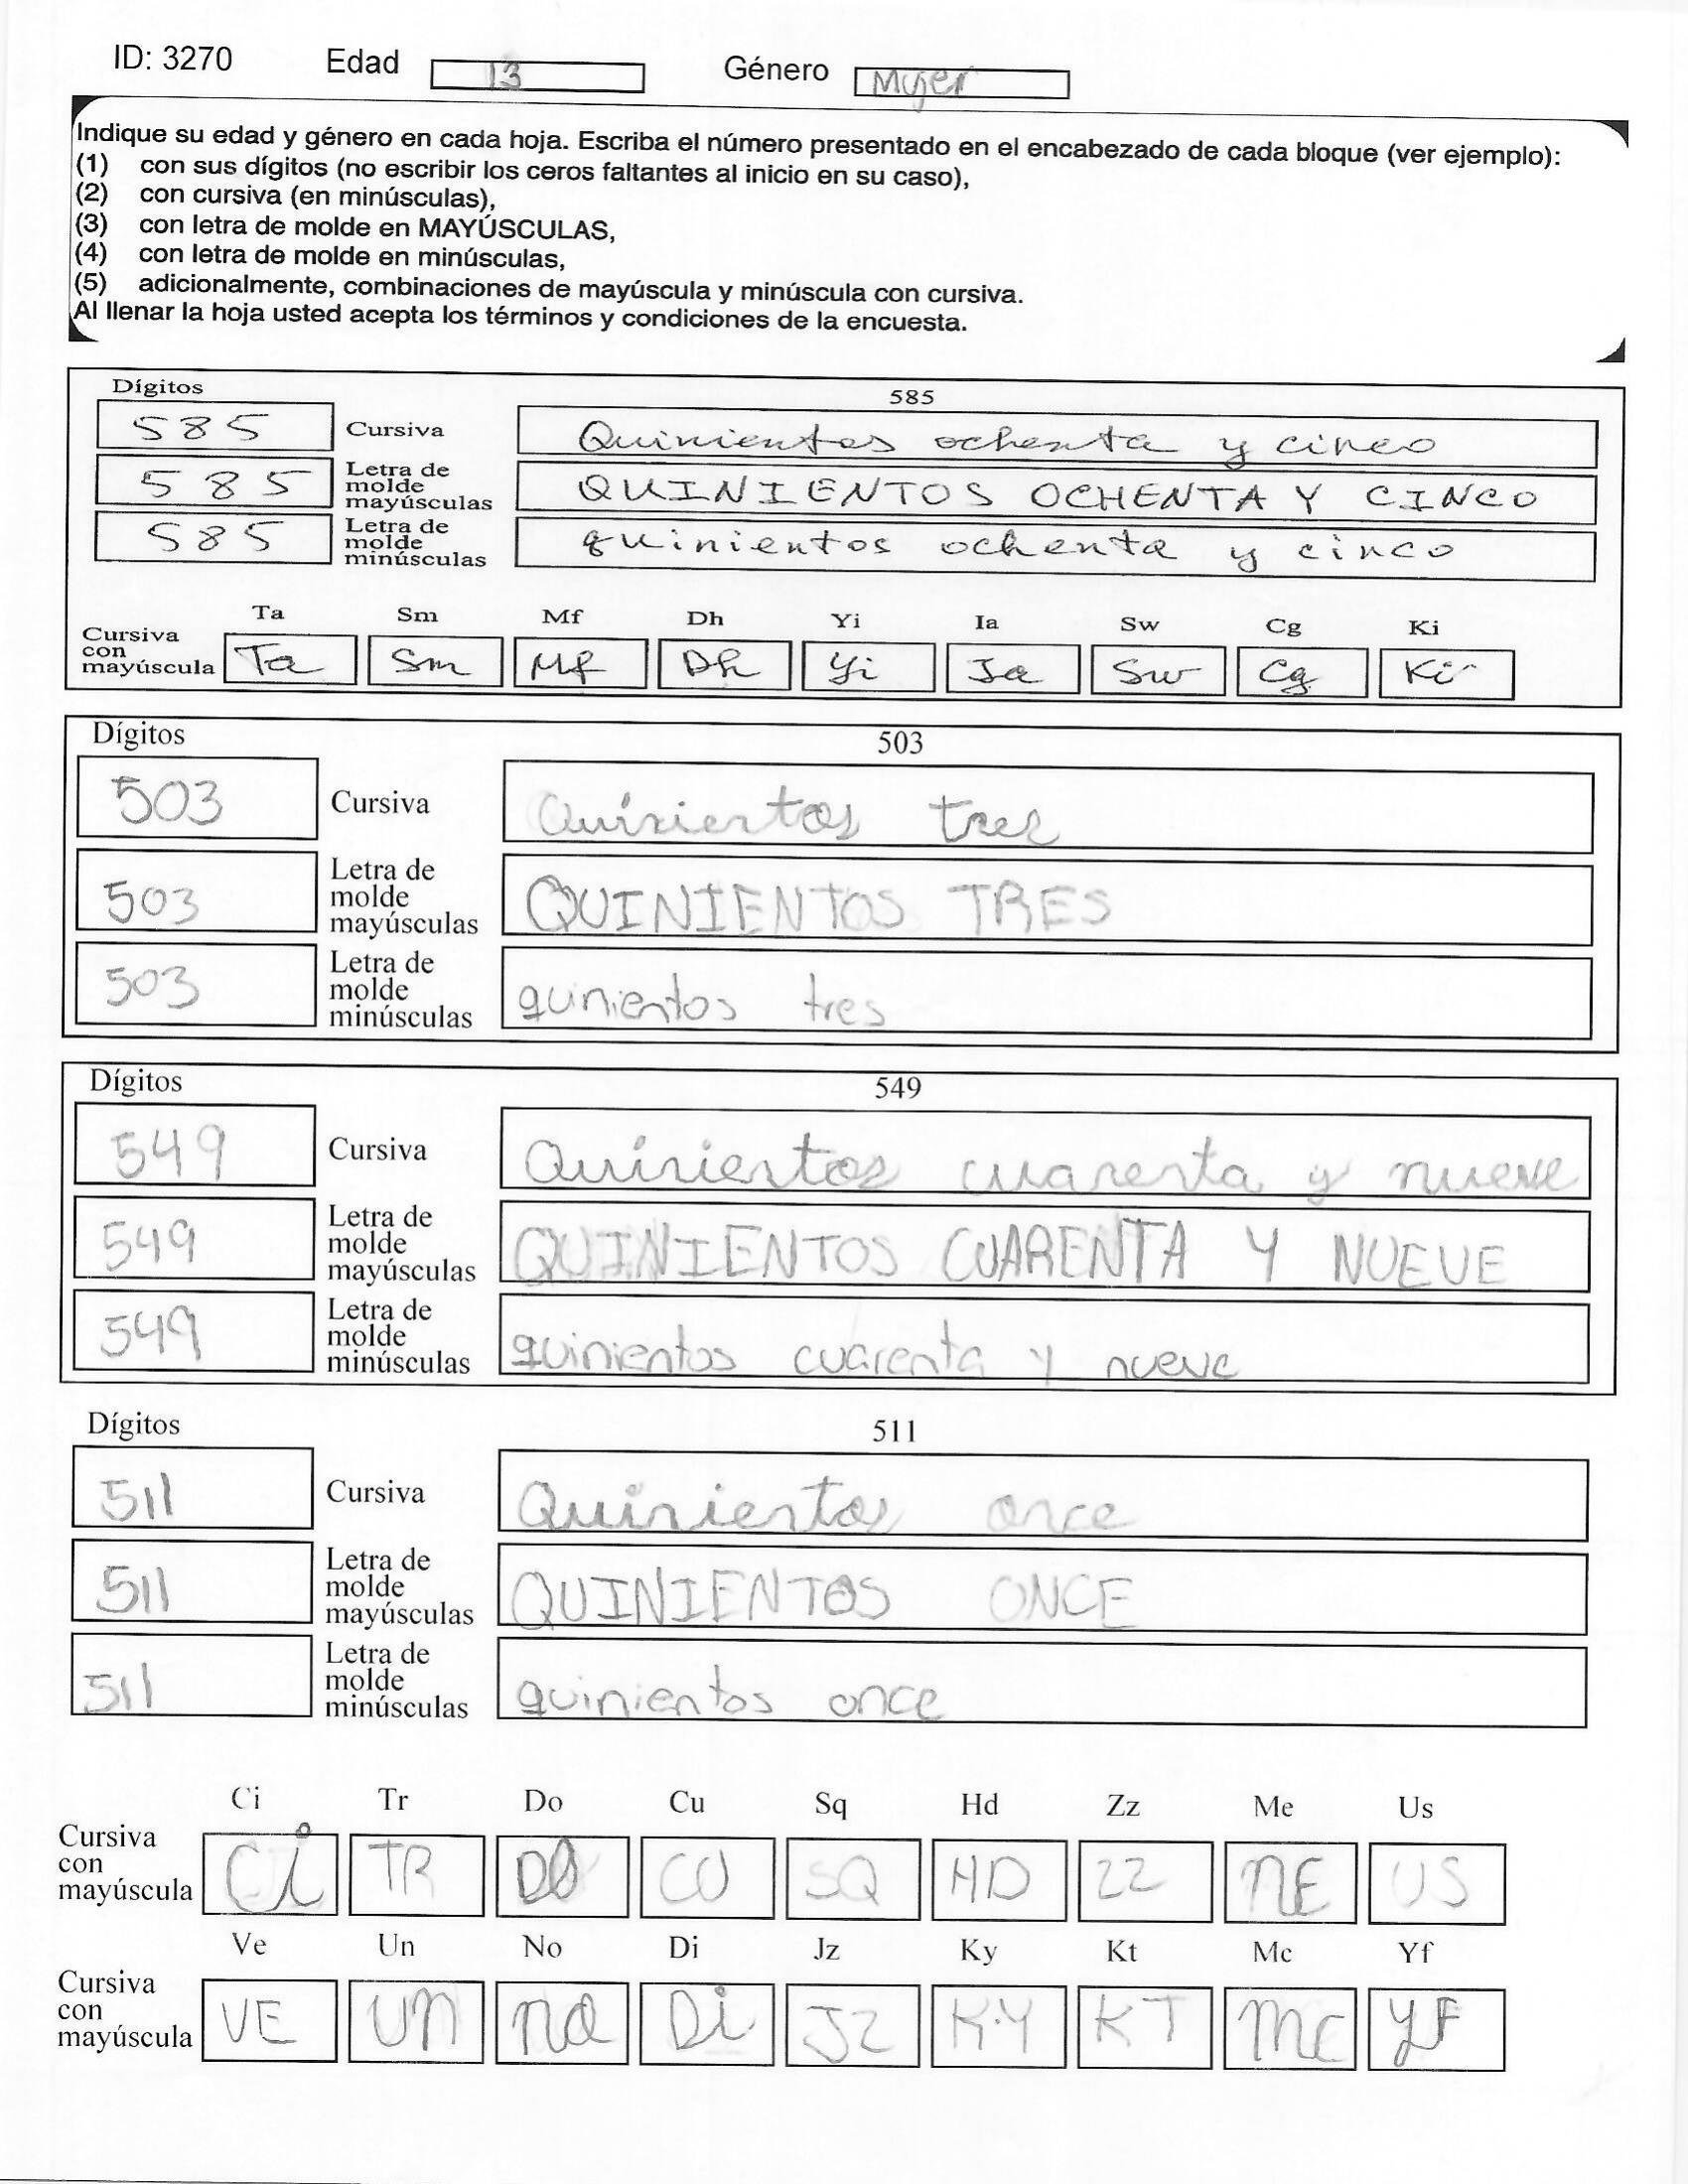 ID: 3270 Edad 13 Género Mujer
Indique su edad y género en cada hoja. Escriba el número presentado en el encabezado de cada bloque (ver ejemplo):
(1) con sus dígitos (no escribir los ceros faltantes al inicio en su caso),
(2) con cursiva (en minúsculas),
(3) con letra de molde en MAYÚSCULAS,
(4) con letra de molde en minúsculas,
(5) adicionalmente, combinaciones de mayúscula y minúscula con cursiva.
Al llenar la hoja usted acepta los términos y condiciones de la encuesta.
Dígitos 585
585 Cursiva Quinientos ochenta y cinco
585 Letra de molde mayúsculas QUINIENTOS OCHENTA Y CINCO
585 Letra de molde minúsculas quinientos ochenta y cinco
Ta Sm Mf Dh Yi Ia Sw Cg Ki
Cursiva con mayúscula Ta Sm Mf Dh Yi Ia Sw Cg Ki
Dígitos 503
503 Cursiva Quinientos tres
503 Letra de molde mayúsculas QUINIENTOS TRES
503 Letra de molde minúsculas quinientos tres
Dígitos 549
549 Cursiva Quinientos cuarenta y nueve
549 Letra de molde mayúsculas QUINIENTOS CUARENTA Y NUEVE
549 Letra de molde minúsculas quinientos cuarenta y nueve
Dígitos 511
511 Cursiva Quinientos once
511 Letra de molde mayúsculas QUINIENTOS ONCE
511 Letra de molde minúsculas quinientos once
Ci Tr Do Cu Sq Hd Zz Me Us
Cursiva con mayúscula Ci TR DO CU SQ HD ZZ ME US
Ve Un No Di Jz Ky Kt Mc Yf
Cursiva con mayúscula VE Un no Di JZ KY KT Mc YF